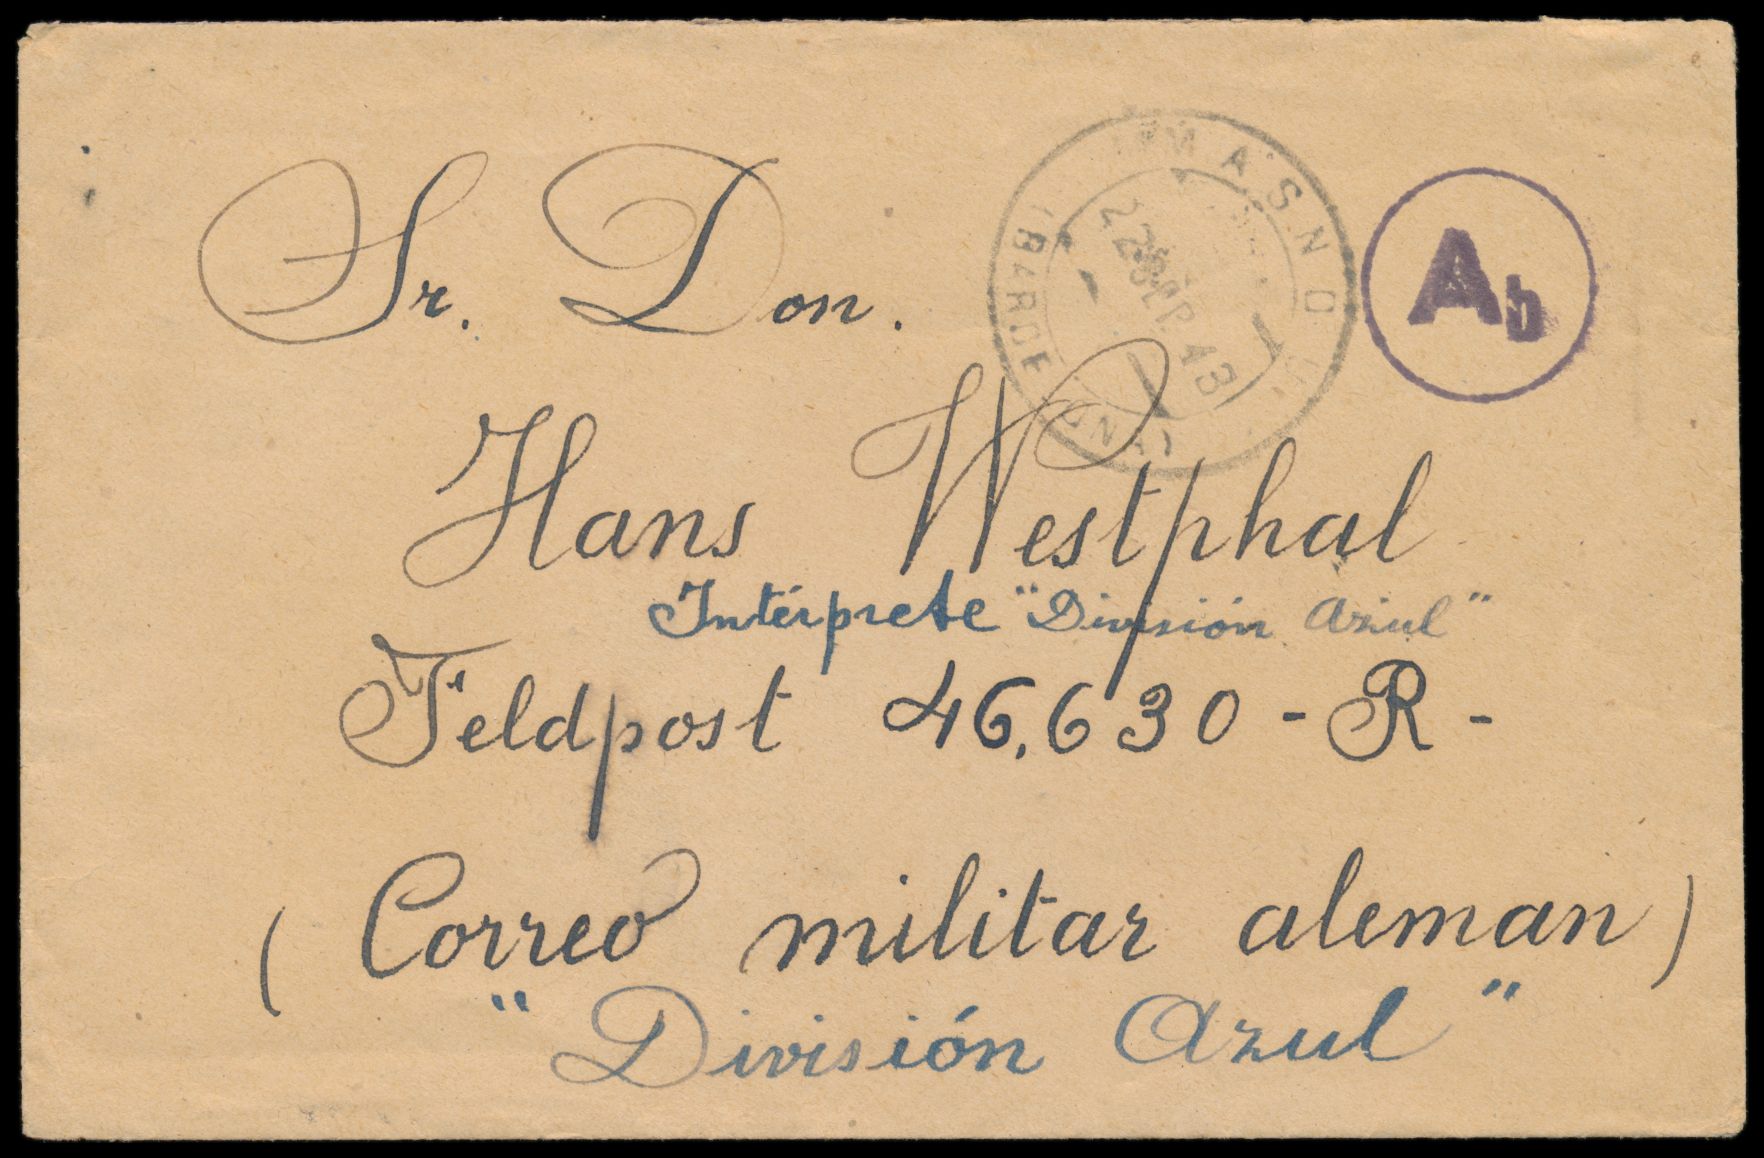 Sr. Don.
Hans Westphal
Intérprete "División Azul"
Feldpost 46,630 - R -
(Correo militar aleman)
"División Azul"
MASNOU
(BARCELONA)
22 SEP. 43
Ab